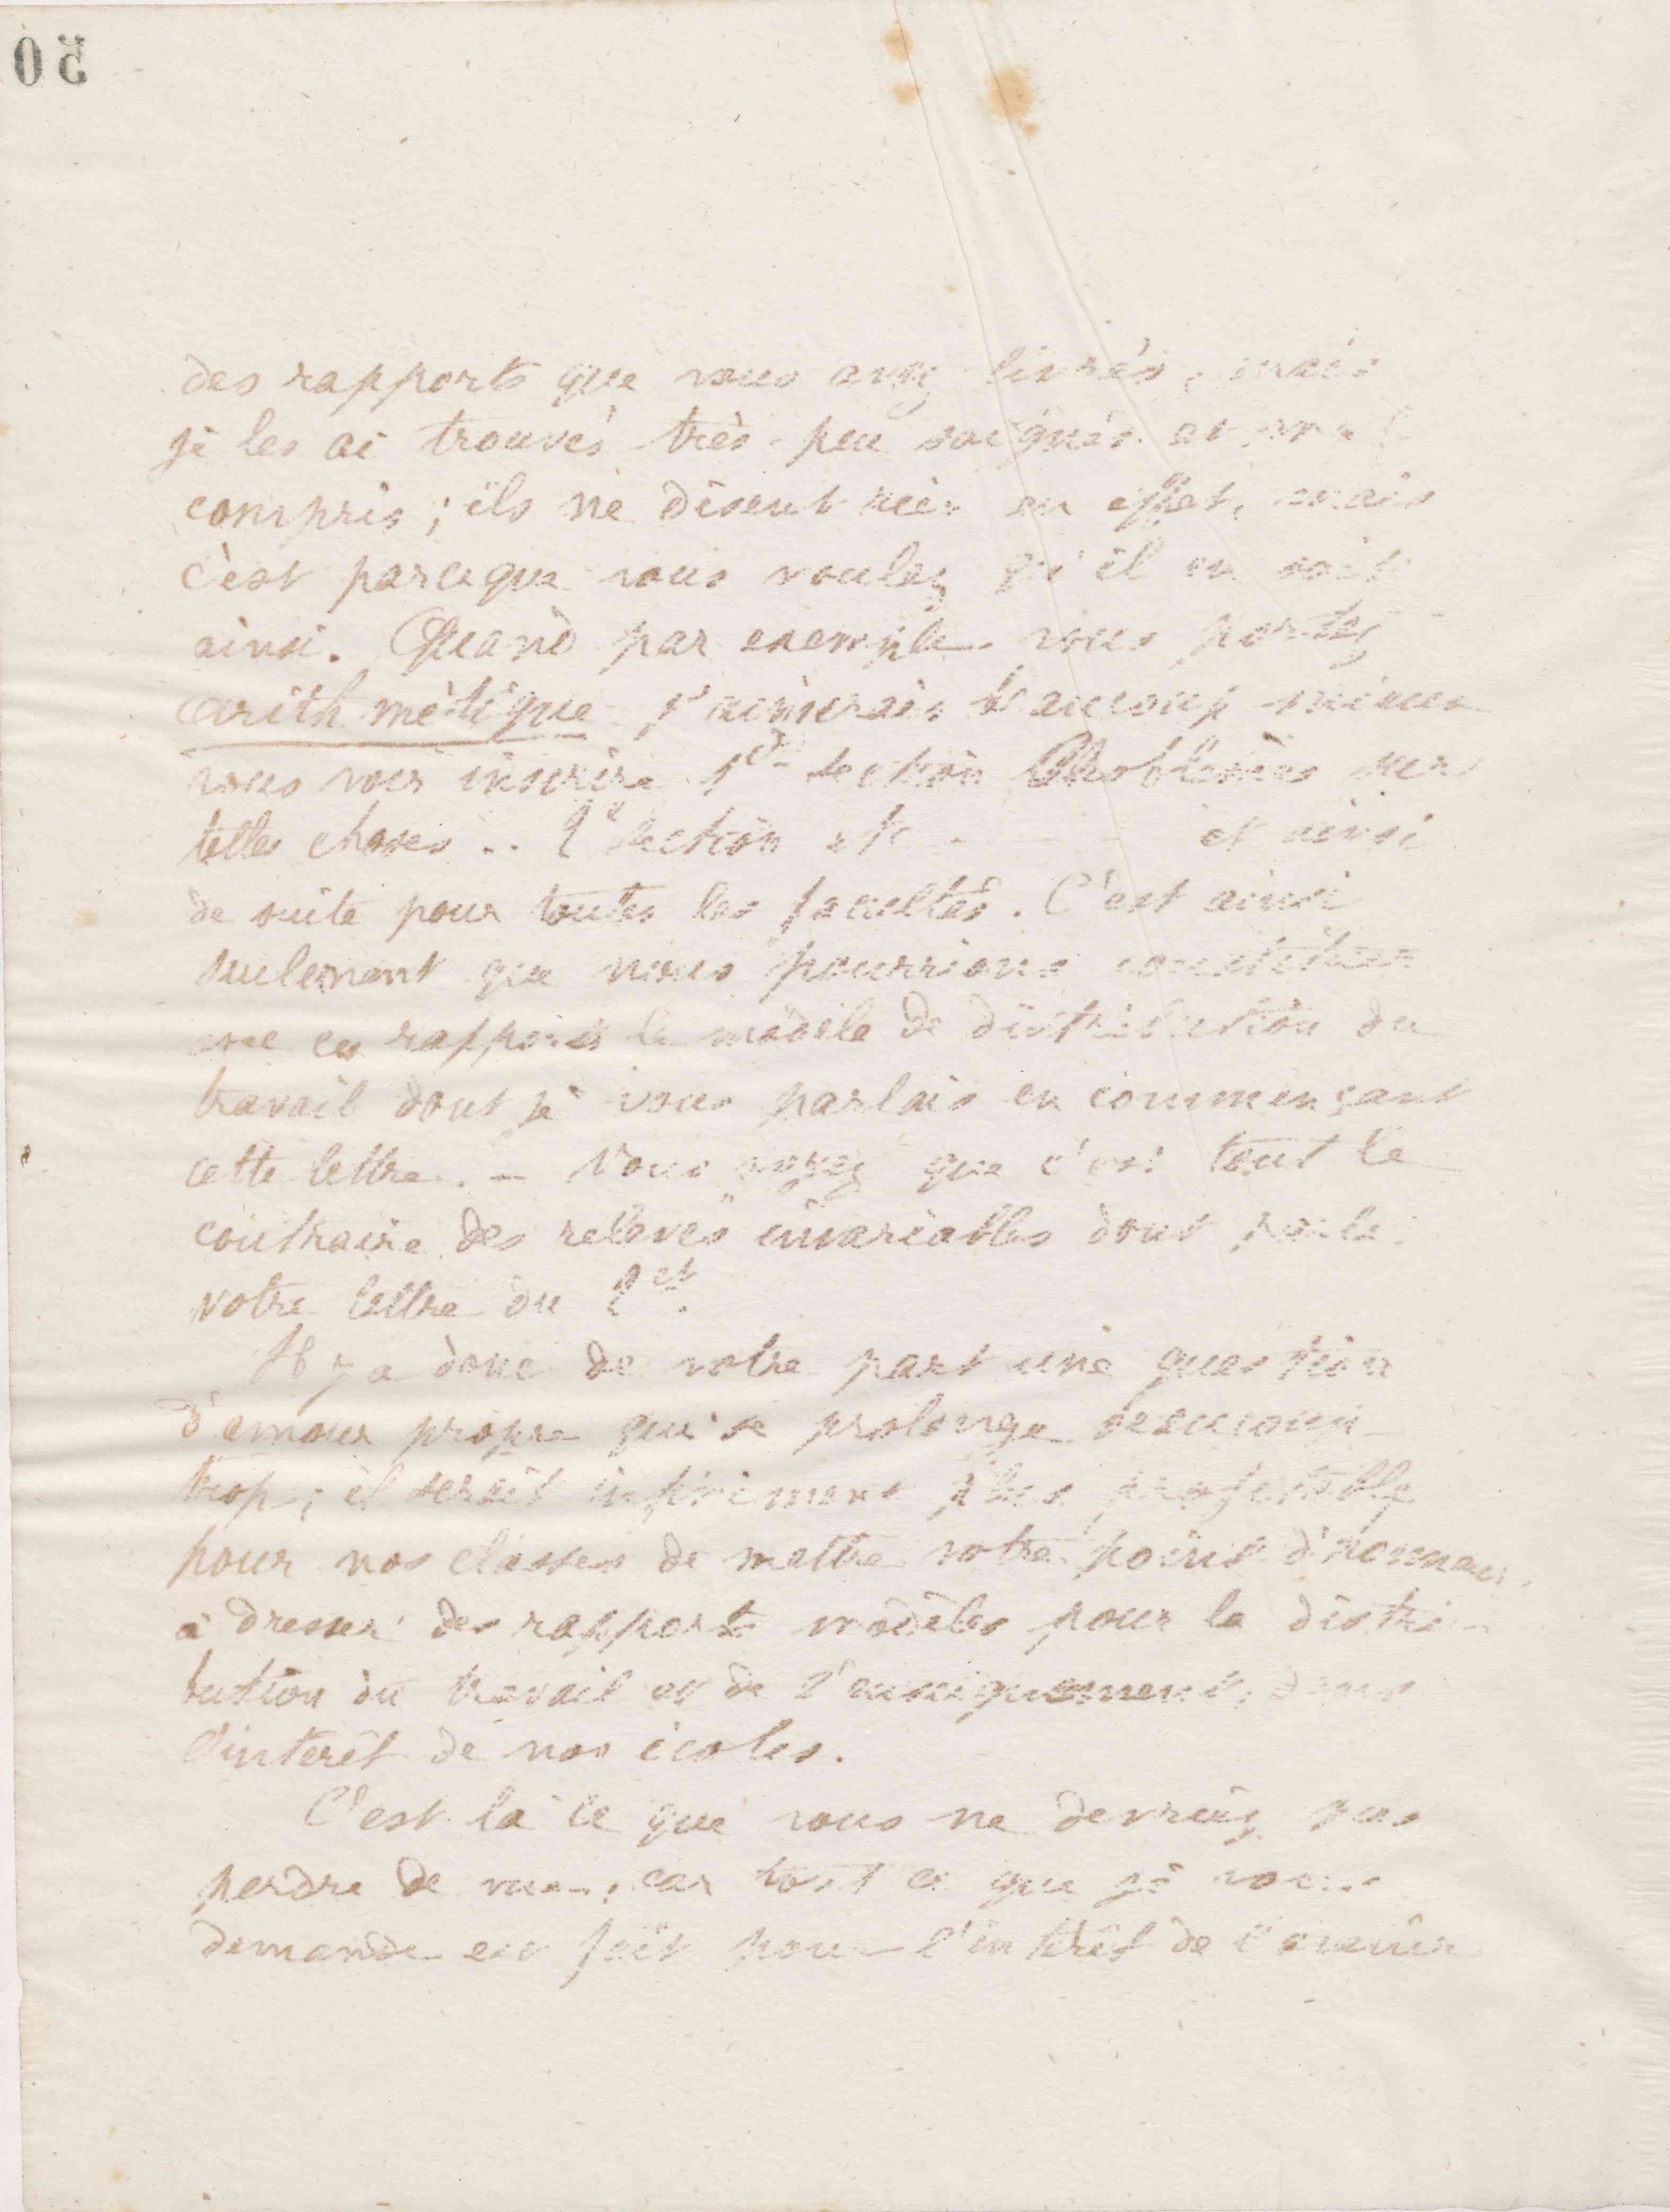 50
des rapports que vous avez livrés, mais
je les ai trouvés très-peu soignés et mal
compris ; ils ne disent rien en effet, mais
c'est parceque vous voulez qu'il en soit
ainsi. Quand par exemple vous portez
arithmètique j'aimerais beaucoup mieux
vous voir inscrire 1e section Problèmes sur
telles choses .. 2e section etc - - - et ainsi
de suite pour toutes les facultés. C'est ainsi
seulement que nous pourrions constituer
avec ces rapports le modèle de distribution du
travail dont je vous parlais en commençant
cette lettre. - Vous voyez que c'est tout le
contraire des relevés invariables dont parle
votre lettre du 2 ct.
Il y a donc de votre part une question
d'amour propre qui se prolonge beaucoup
trop ; il serait infiniment plus profitable
pour nos classes de mettre votre point d'honneur
à dresser des rapports modèles pour la distri-
bution du travail et de l'enseignement, dans
l'interêt de nos écoles.
C'est là ce que vous ne devriez pas
perdre de vue, car tout ce que je vous
demande est fait pour l'intérêt de l'avenir